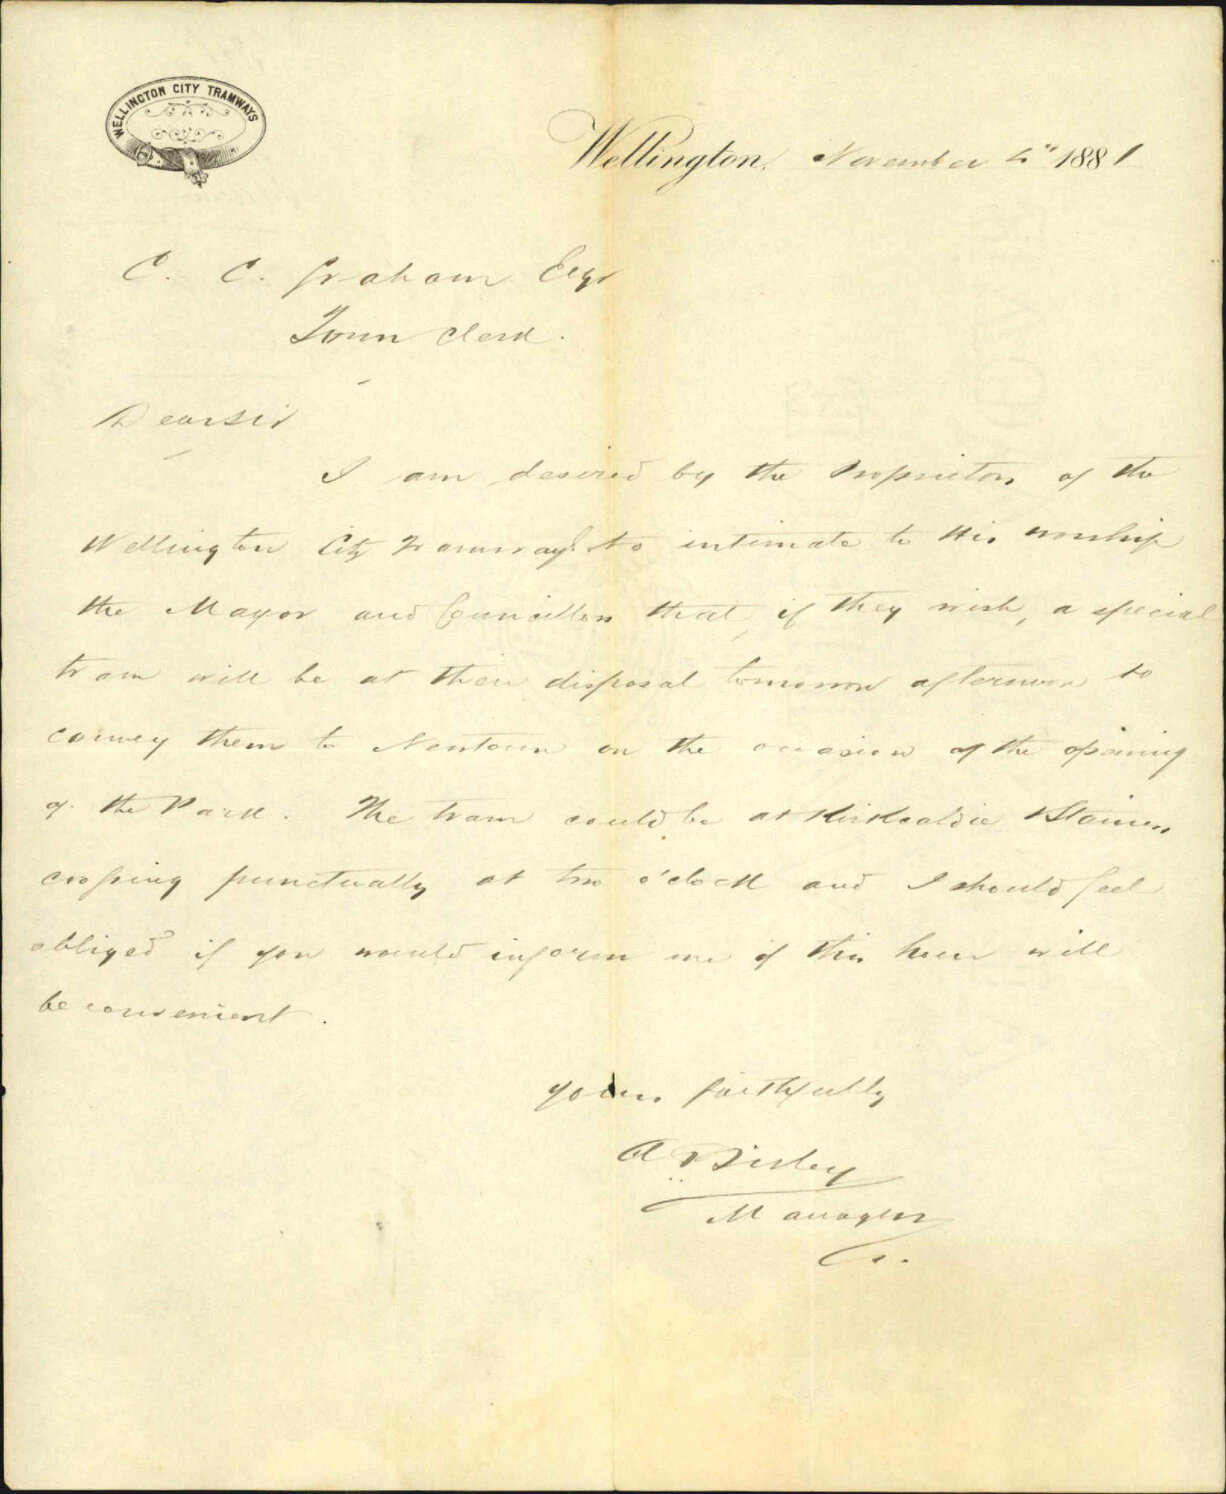 WELLINGTON CITY TRAMWAYS
Wellington, November 4th 1881
C. C. Graham Esqr
Town Clerk.
Dear Sir
I am desired by the Proprietors of the
Wellington City Tramways to intimate to His worship
the Mayor and Councillors that, if they wish, a special
tram will be at their disposal tomorrow afternoon to
convey them to Newtown on the occasion of the opening
of the Park. The tram could be at Kirkcaldie & Stains
crossing punctually at two o'clock and I should feel
obliged if you would inform me if this hour will
be convenient.
yours faithfully
A
Manager